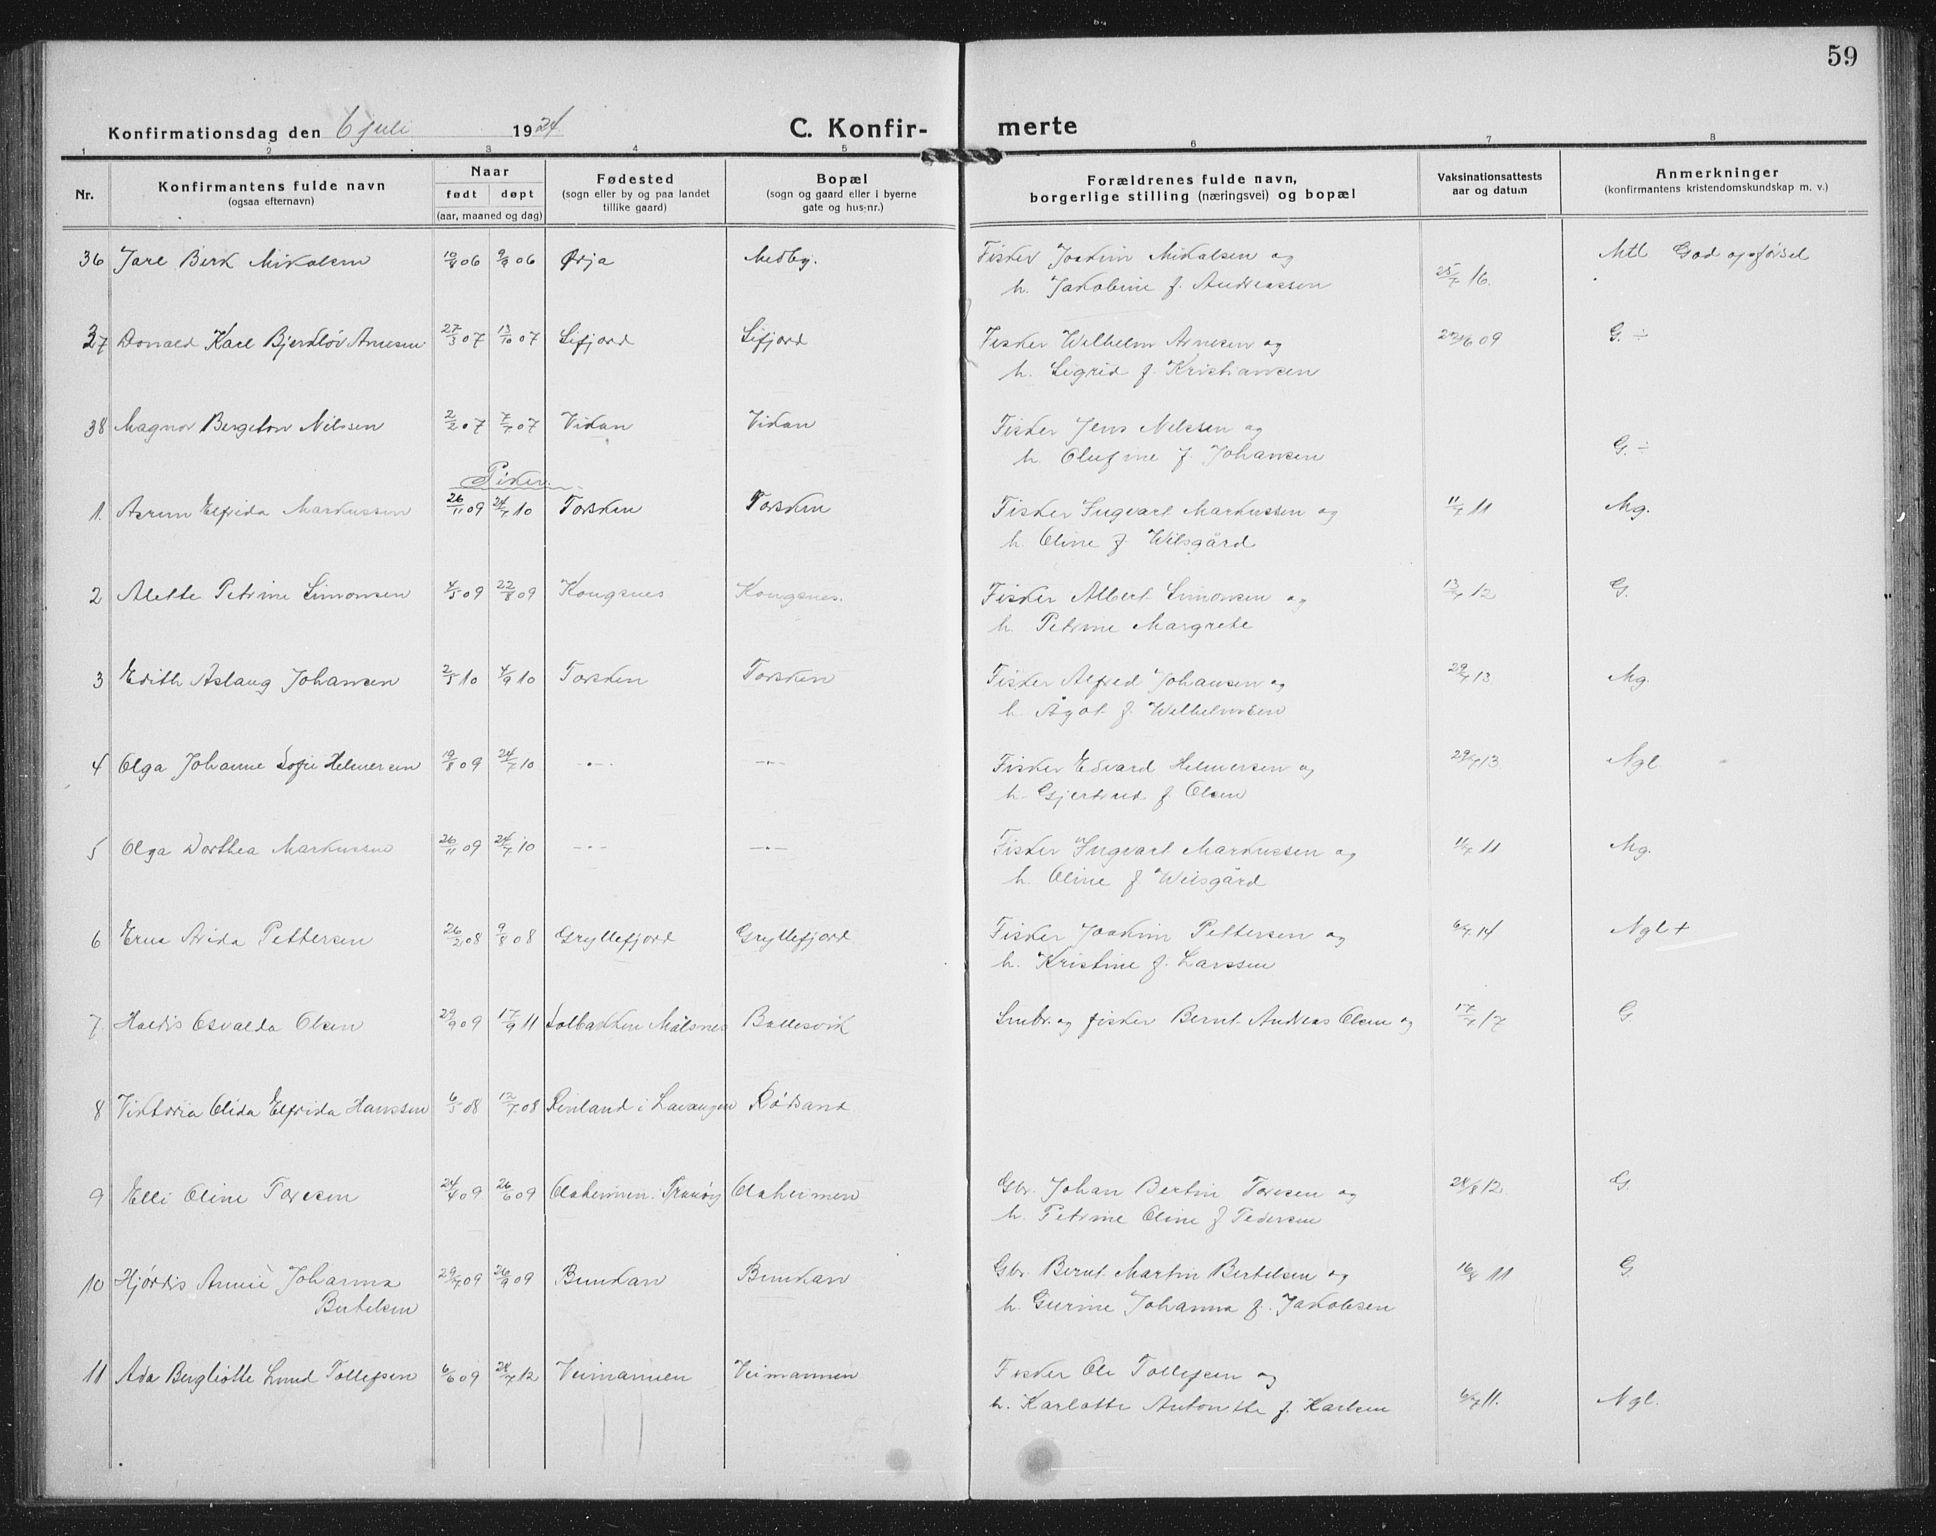 59
Konfirmationsdag den 6 juli 1924 C. Konfir- merte
1 2 3 4 5 6 7 8
Nr. Konfirmantens fulde navn (ogsaa efternavn) Naar født døpt (aar, maaned og dag) Fødested (sogn eller by og paa landet tillike gaard) Bopæl (sogn og gaard eller i byerne gate og hus-nr.) Forældrenes fulde navn, borgerlige stilling (næringsvei) og bopæl Vaksinationsattests aar og datum Anmerkninger (konfirmantens kristendomskundskap m. v.)
36 Jarl Berk Mikalsen 06 06 Ørja Medby. Fisker Joakim Mikalsen og Mtl God opførsel
h. Jakobine f. Andreassen 25/7 16.
37 Donald Karl Arnesen 27/3 07 13/10 07 Sifjord Sifjord Fisker Wilhelm Arnesen og 09 G. ÷
h. Sigrid f. Kristiansen
38 Magnor Bergeton Nilssen 2/2 07 7/7 07 Vikan Vikan Fisker Jens Nilssen og
h. Olufine f. Johansen G. ÷
Piker.
1. Elfrida Markussen 26/11 09 24/7 10 Torsken Torsken Fisker Ingvart Markussen og 11/7 11 Mg.
h. Oline f. Wilsgård
2 Alette Petrine Simonsen 4/5 09 22/8 09 Kongsnes Kongsnes. Fisker Albert Simonsen og 13/7 12 G.
h. Petrine Margrete
3 Edith Aslaug Johansen 2/5 10 4/9 10 Torsken Torsken Fisker Alfred Johansen og 29/7 13. Mg.
h. Ågot f. Wilhelmsen
4 Olga Johanne Sofie Helmersen 19/8 09 24/7 10 -"- -"- Fisker Edvard Helmersen og 29/7 13. Ngl.
h. Gjertrud f. Olsen
5 Olga Dorthea Markussen 26/11 09 24/7 10 -"- -"- Fisker Ingvart Markussen og 11/7 11 Mg.
h. Oline f. Wilsgård
6 Erna Arida Pettersen 26/2 08 9/8 08 Gryllefjord Gryllefjord Fisker Joakim Pettersen og 6/7 14 Ngl +
h. Kristine f. Larssen
7 Haldis Osvalda Olsen 29/9 09 17/9 11 Solbakken Målsnes Ballesvik Smbr. og fisker Bernt Andreas Olsen og 17/7 17 G.
8 Viktoria Olida Elfrida Hanssen 6/5 08 12/7 08 Renland i Lavangen Rødsand
9 Elli Oline Toresen 24/4 09 26/6 09 Olaheimen i Tranøy Olaheimen Gbr. Johan Bertin Toresen og 28/8 12. G.
h. Petrine Oline f. Pedersen
10 Hjørdis Annie Johanna 29/7 09 26/9 09 Bunkan Bunkan Gbr. Bernt Martin Bertelsen og 16/8 11 G.
Bertelsen h. Gurine Johanna f. Jakobsen
11 Ada Bergliotte Lund Tollefsen 6/6 09 28/7 12 Veimannen Veimannen Fisker Ole Tollefsen og
h. Karlotte Antonette f. Karlsen 6/7 11. Ngl.